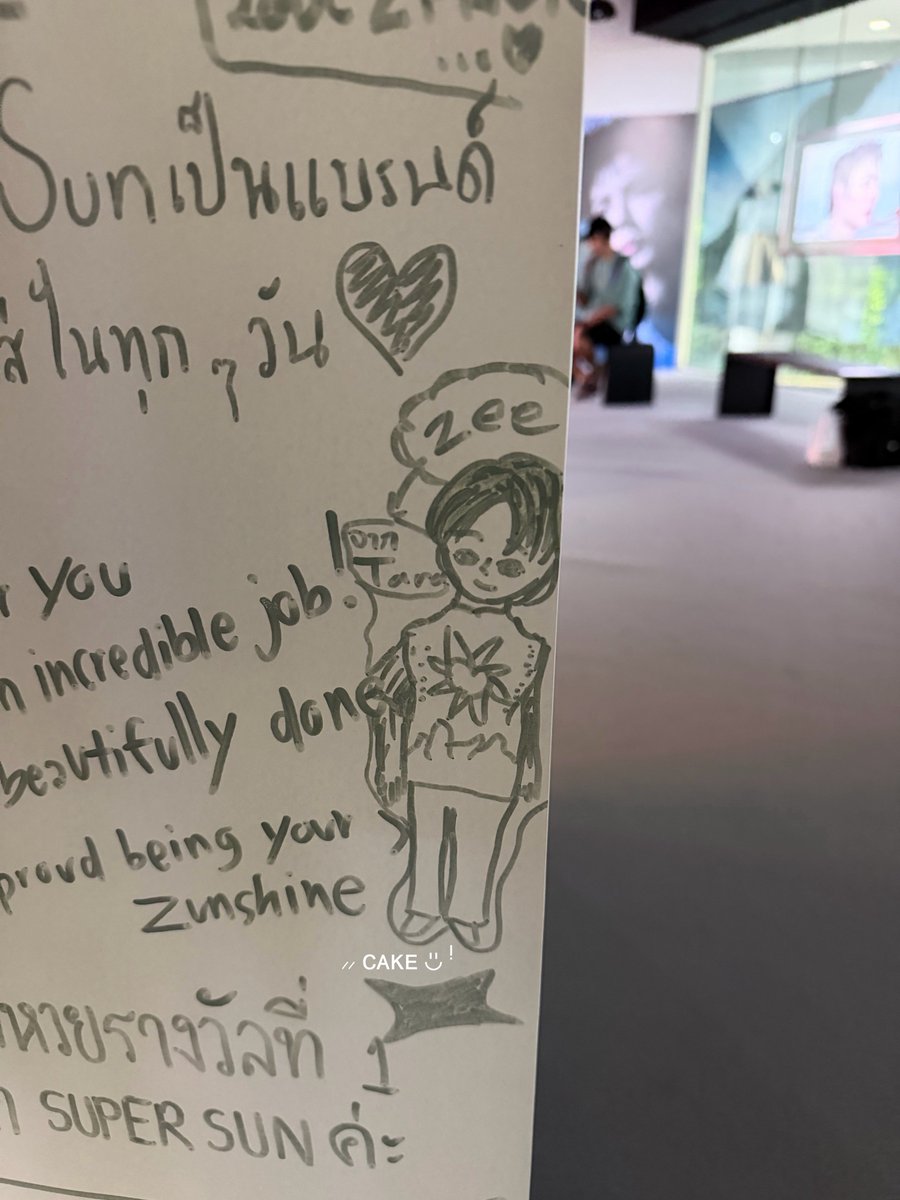 Sunเป็นแบรนด์
ใส่ ในทุก ๆ วัน
zee
จาก
Tara
you
incredible job!
beautifully done
proud being your
zunshine
CAKE
หวยรางวัลที่ 1
SUPER SUN ค่ะ